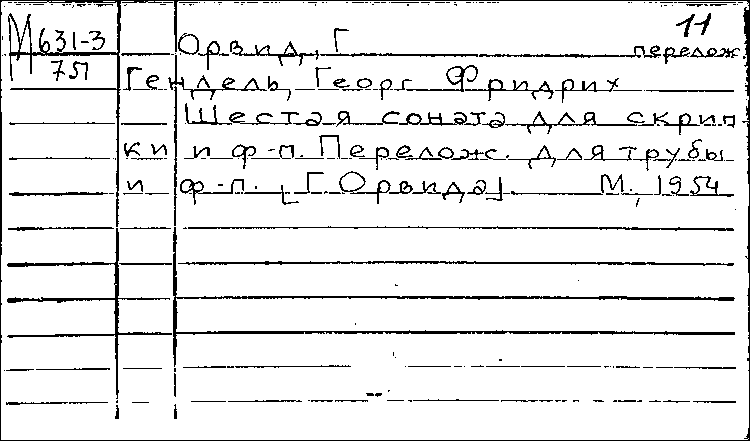 11
М 631-3
Орвид, Г.
перелож.
751
Гендель, Георг Фридрих
Шестая соната для скрип-
ки и ф-п. Перелож. для трубы
и ф-п. [Г. Орвида]. М., 1954